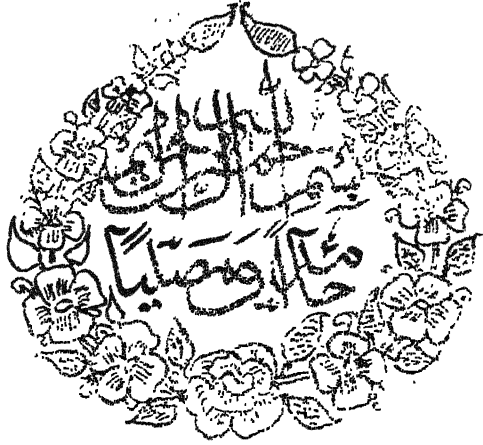 بسم الله الرحمن الرحيم
حامدًا ومصليًا